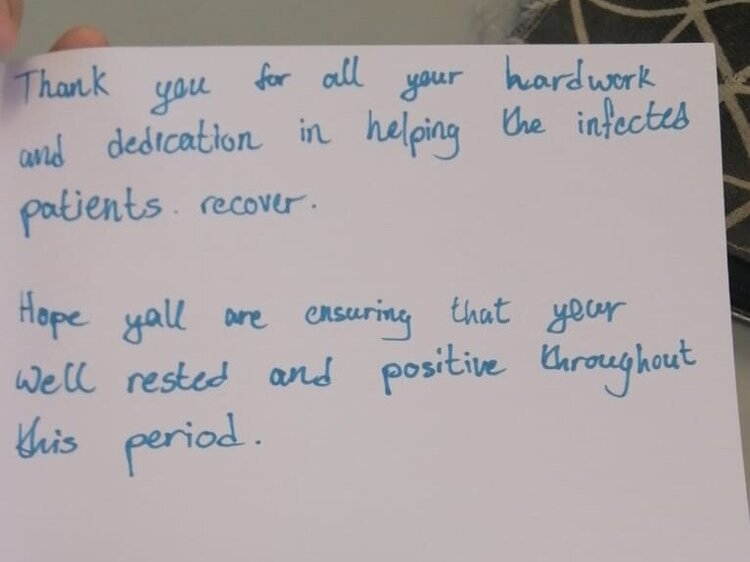 Thank you for all your hardwork
and dedication in helping the infected
patients. recover.
Hope yall are ensuring that your
well rested and positive throughout
this period.